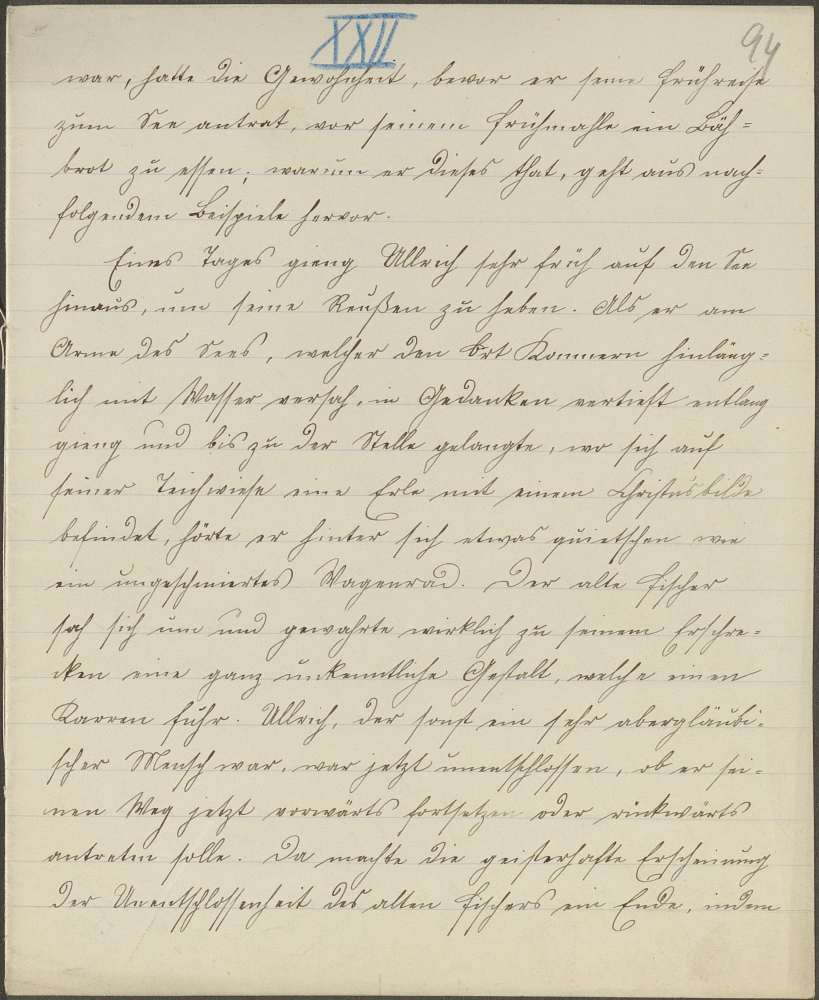 XXII
94
war, hatte die Gewohnheit, bevor er seine Frühreise
zum See antrat, vor seinem Frühmahle ein Bäh-
brot zu essen; warum er dieses that, geht aus nach-
folgendem Beispiele hervor.
Eines Tages gieng Ullrich sehr früh auf den See
hinaus, um seine Reußen zu heben. Als er am
Arme des Sees, welcher den Ort Kommern hinläng-
lich mit Wasser versah, in Gedanken vertieft entlang
gieng und bis zu der Stelle gelangte, wo sich auf
seiner Teichwiese eine Erle mit einem Christusbilde
befindet, hörte er hinter sich etwas quietschen wie
ein ungeschmiertes Wagenrad. Der alte Fischer
sah sich um und gewahrte wirklich zu seinem Erschre-
cken eine ganz unkenntliche Gestalt, welche einen
Karren fuhr. Ullrich, der sonst ein sehr abergläubi-
scher Mensch war, war jetzt unentschlossen, ob er sei-
nen Weg jetzt vorwärts fortsetzen oder rückwärts
antreten solle. Da machte die geisterhafte Erscheinung
der Unentschlossenheit des alten Fischers ein Ende, indem